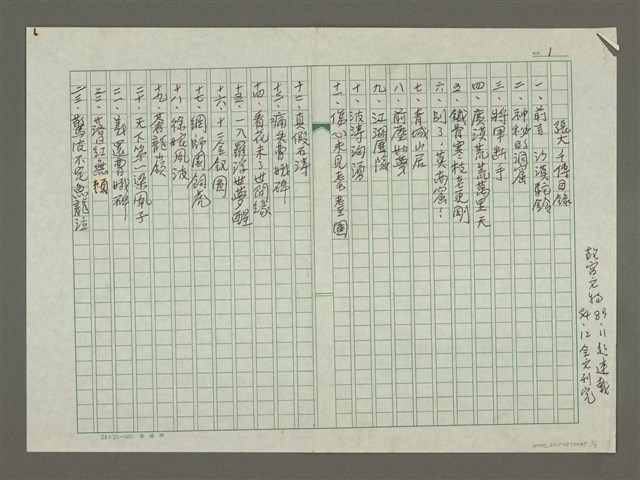 NO. 1
張大千傳目錄
一、前言 沙漠駝鈴
二、神秘的洞窟
三、將軍斷手
四、廣漠荒荒萬里天
五、鐵骨寒枝老更剛
六、別了，莫高窟！
七、青城山居
八、前塵如夢
九、江湖歷險
十、波濤洶湧
十一、傷心未見耄耋圖
十二、真假石濤
十三、痛失曹娥碑
十四、看花未了世間緣
十五、一入羅浮世夢醒
十六、十二金釵圖
十七、網師園飼虎
十八、徐悲鴻風波
十九、蒼龍嶺
二十、天下第一梁風子
二一、義還曹娥碑
二二、落日紅無賴
二三、驚波不定魚龍泣
故宮文物83.11起連載
84.12全文刊完
24×25=600